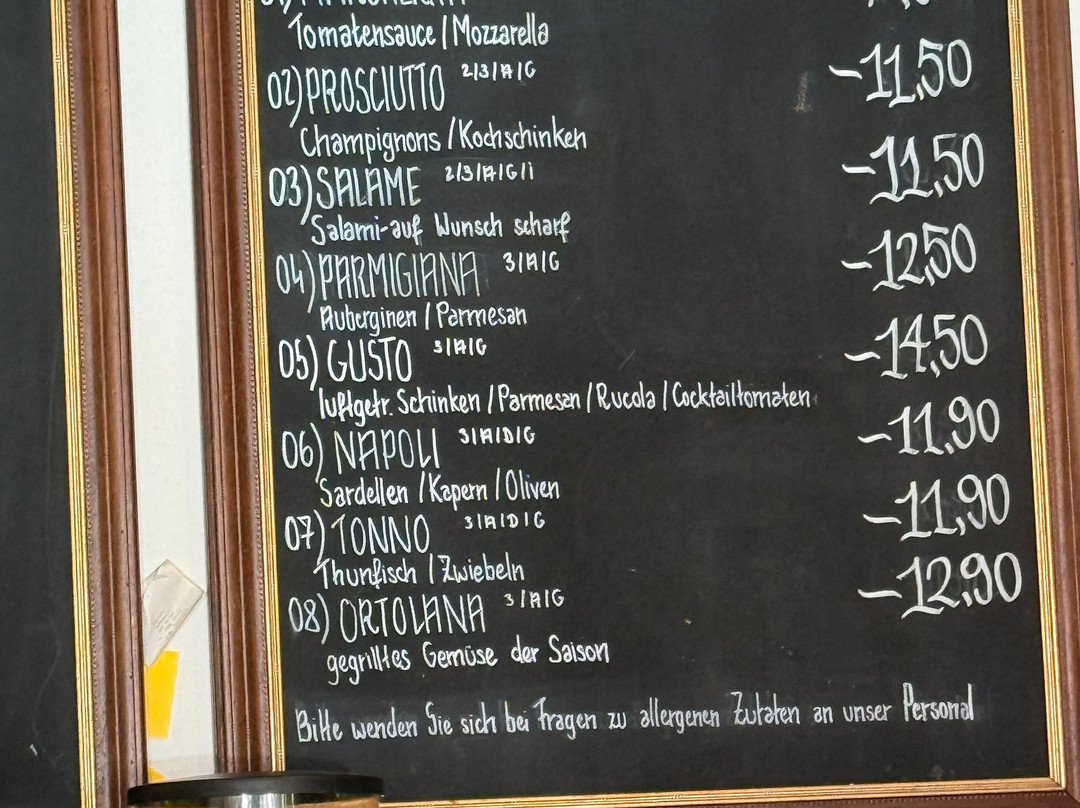 Tomatensauce / Mozzarella
02) PROSCIUTTO 2/3/A/G -11,50
Champignons / Kochschinken
03) SALAME 2/3/A/G/i -11,50
Salami-auf Wunsch scharf
04) PARMIGIANA 3/A/G -12,50
Auberginen / Parmesan
05) GUSTO 3/A/G -14,50
luftgetr. Schinken / Parmesan / Rucola / Cocktailtomaten
06) NAPOLI 3/A/D/G -11,90
Sardellen / Kapern / Oliven
07) TONNO 3/A/D/G -11,90
Thunfisch / Zwiebeln
08) ORTOLANA 3/A/G -12,90
gegrilltes Gemüse der Saison
Bitte wenden Sie sich bei Fragen zu allergenen Zutaten an unser Personal